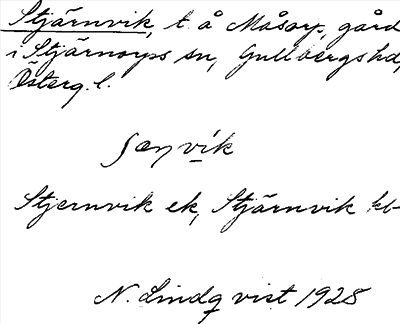 Stjärnvik, t. å Måsorp, gård
i Stjärnorps sn, Gullbergs hd,
Österg. l.
ʃæɲ vik
Stjernvik ek, Stjärnvik kb
N. Lindqvist 1928